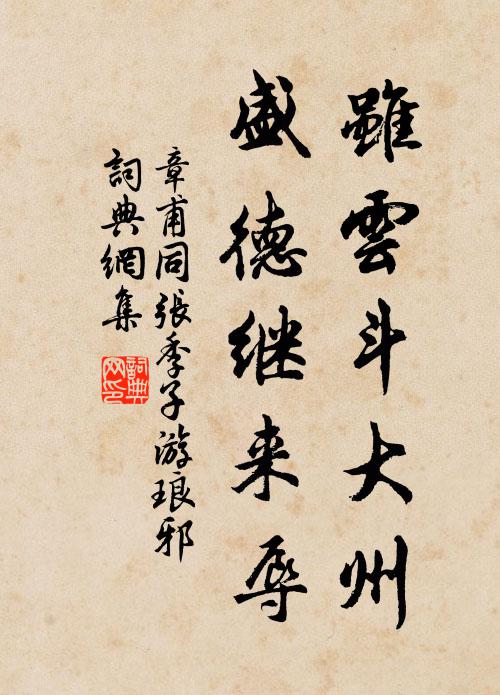 雖雲斗大州
盛德继来辱
章甫同張季子游琅邪
詞典網集
詞典网印